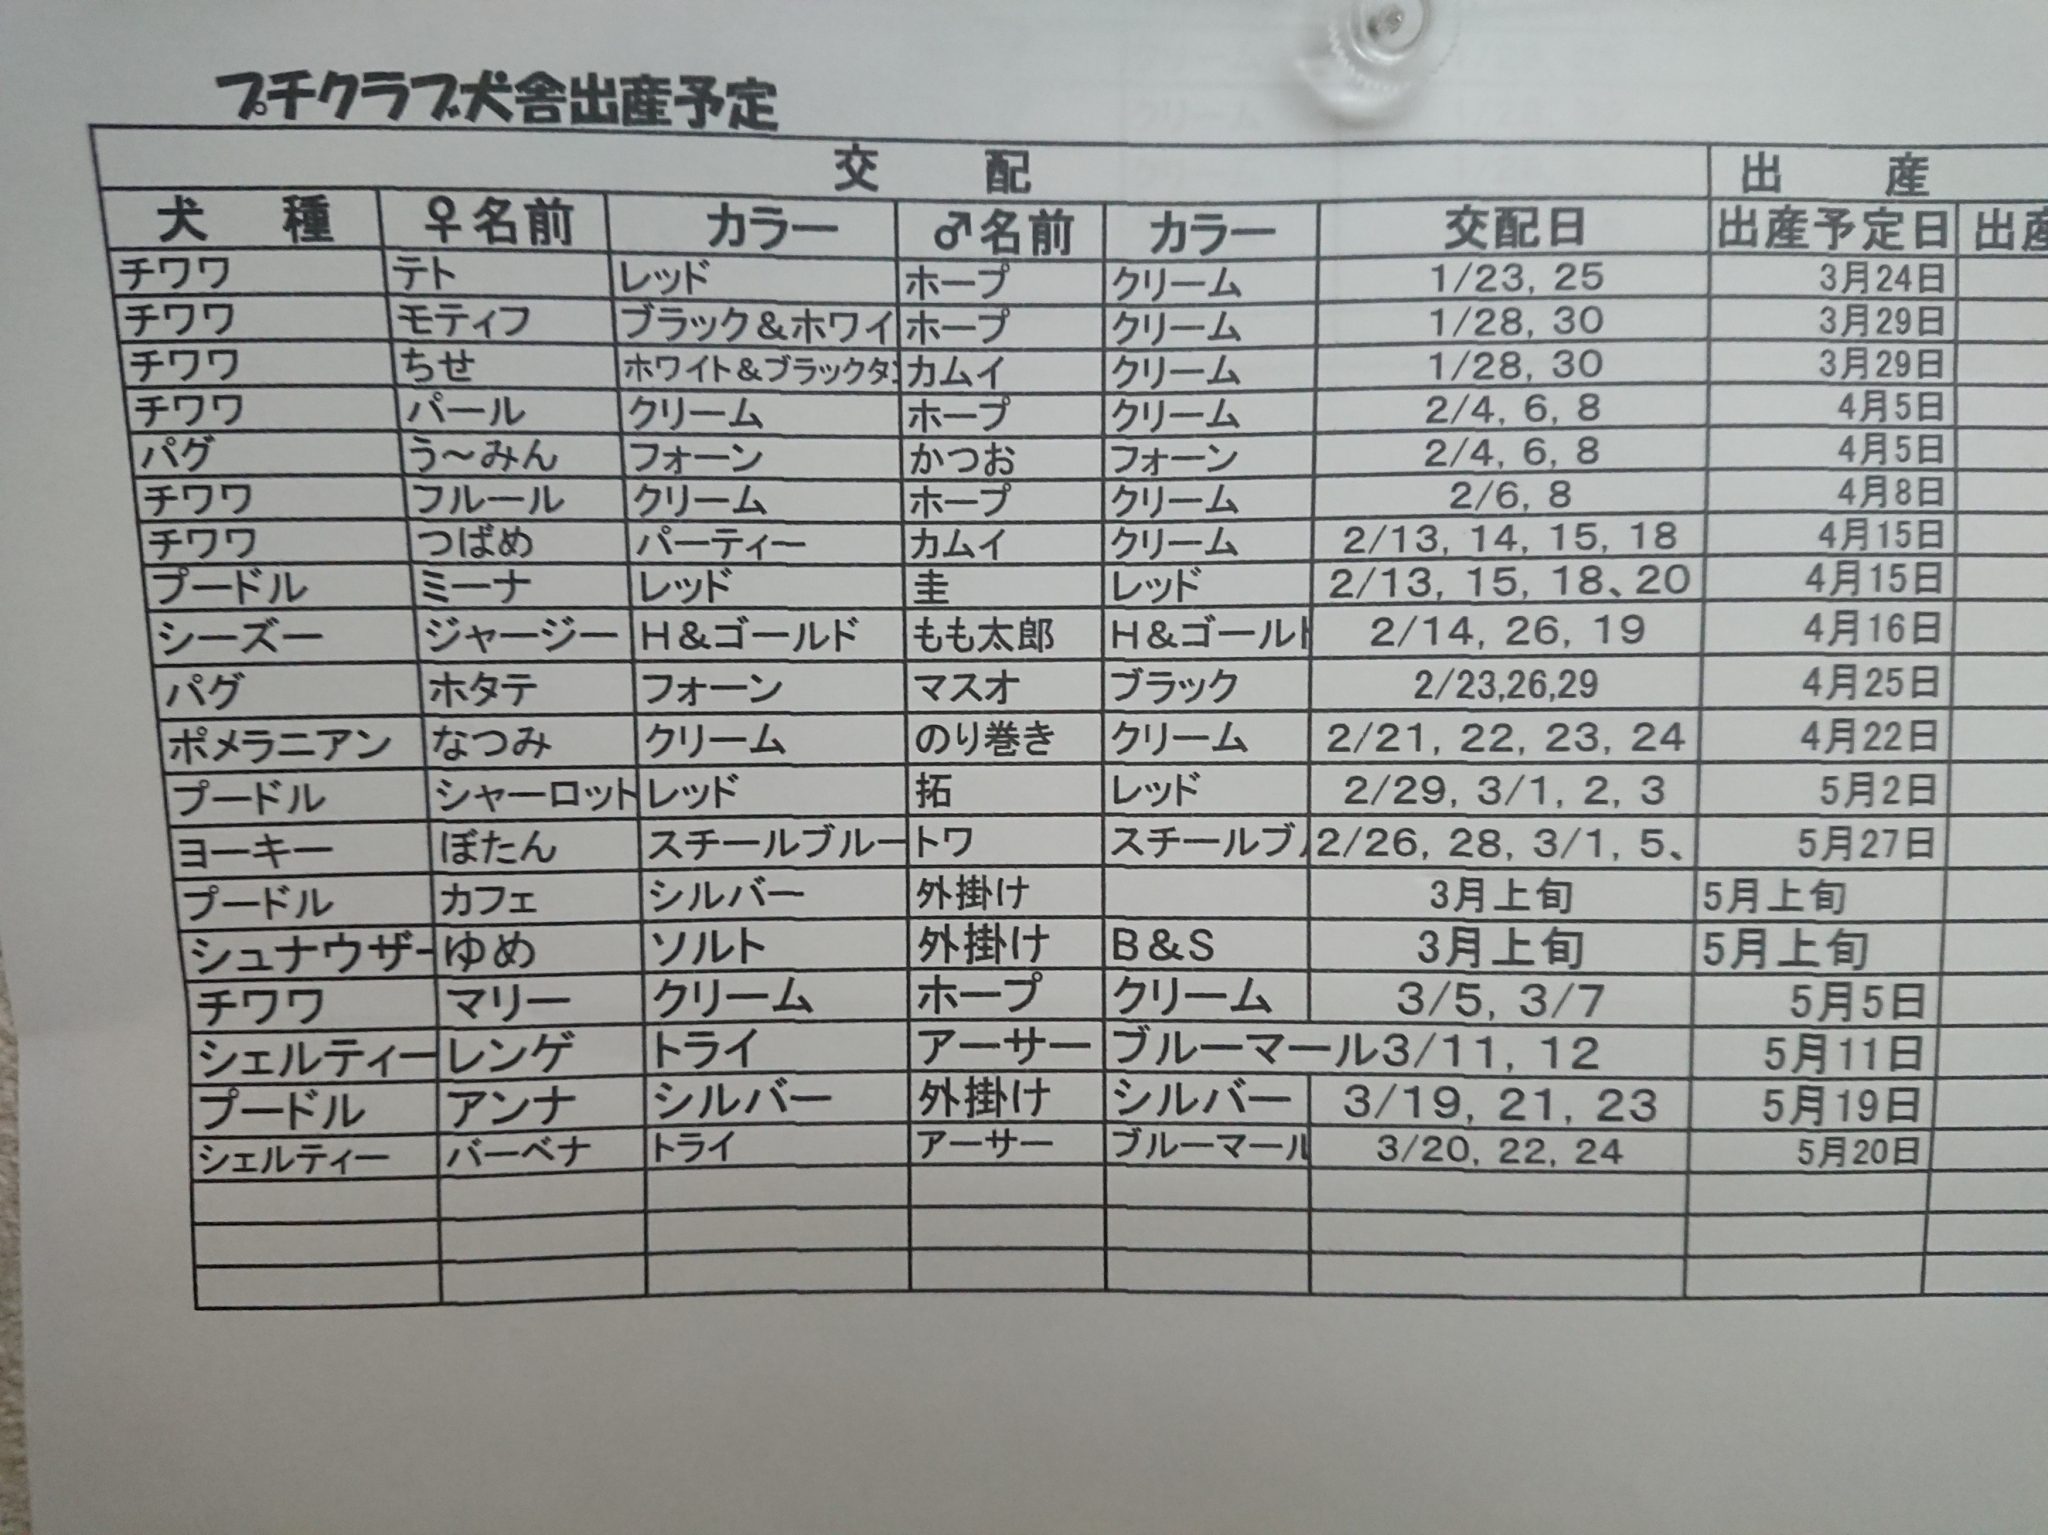 プチクラブ犬舎出産予定
交　配 出　産
犬　種 ♀名前 カラー ♂名前 カラー 交配日 出産予定日 出産
チワワ テト レッド ホープ クリーム 1/23, 25 3月24日
チワワ モティフ ブラック&ホワイ ホープ クリーム 1/28, 30 3月29日
チワワ ちせ ホワイト&ブラックタ カムイ クリーム 1/28, 30 3月29日
チワワ パール クリーム ホープ クリーム 2/4, 6, 8 4月5日
パグ う～みん フォーン かつお フォーン 2/4, 6, 8 4月5日
チワワ フルール クリーム ホープ クリーム 2/6, 8 4月8日
チワワ つばめ パーティー カムイ クリーム 2/13, 14, 15, 18 4月15日
プードル ミーナ レッド 圭 レッド 2/13, 15, 18、20 4月15日
シーズー ジャージー H&ゴールド もも太郎 H&ゴールド 2/14, 26, 19 4月16日
パグ ホタテ フォーン マスオ ブラック 2/23,26,29 4月25日
ポメラニアン なつみ クリーム のり巻き クリーム 2/21, 22, 23, 24 4月22日
プードル シャーロット レッド 拓 レッド 2/29, 3/1, 2, 3 5月2日
ヨーキー ぼたん スチールブルー トワ スチールブ 2/26, 28, 3/1, 5、 5月27日
プードル カフェ シルバー 外掛け 3月上旬 5月上旬
シュナウザー ゆめ ソルト 外掛け B&S 3月上旬 5月上旬
チワワ マリー クリーム ホープ クリーム 3/5, 3/7 5月5日
シェルティー レンゲ トライ アーサー ブルーマール 3/11, 12 5月11日
プードル アンナ シルバー 外掛け シルバー 3/19, 21, 23 5月19日
シェルティー バーベナ トライ アーサー ブルーマール 3/20, 22, 24 5月20日